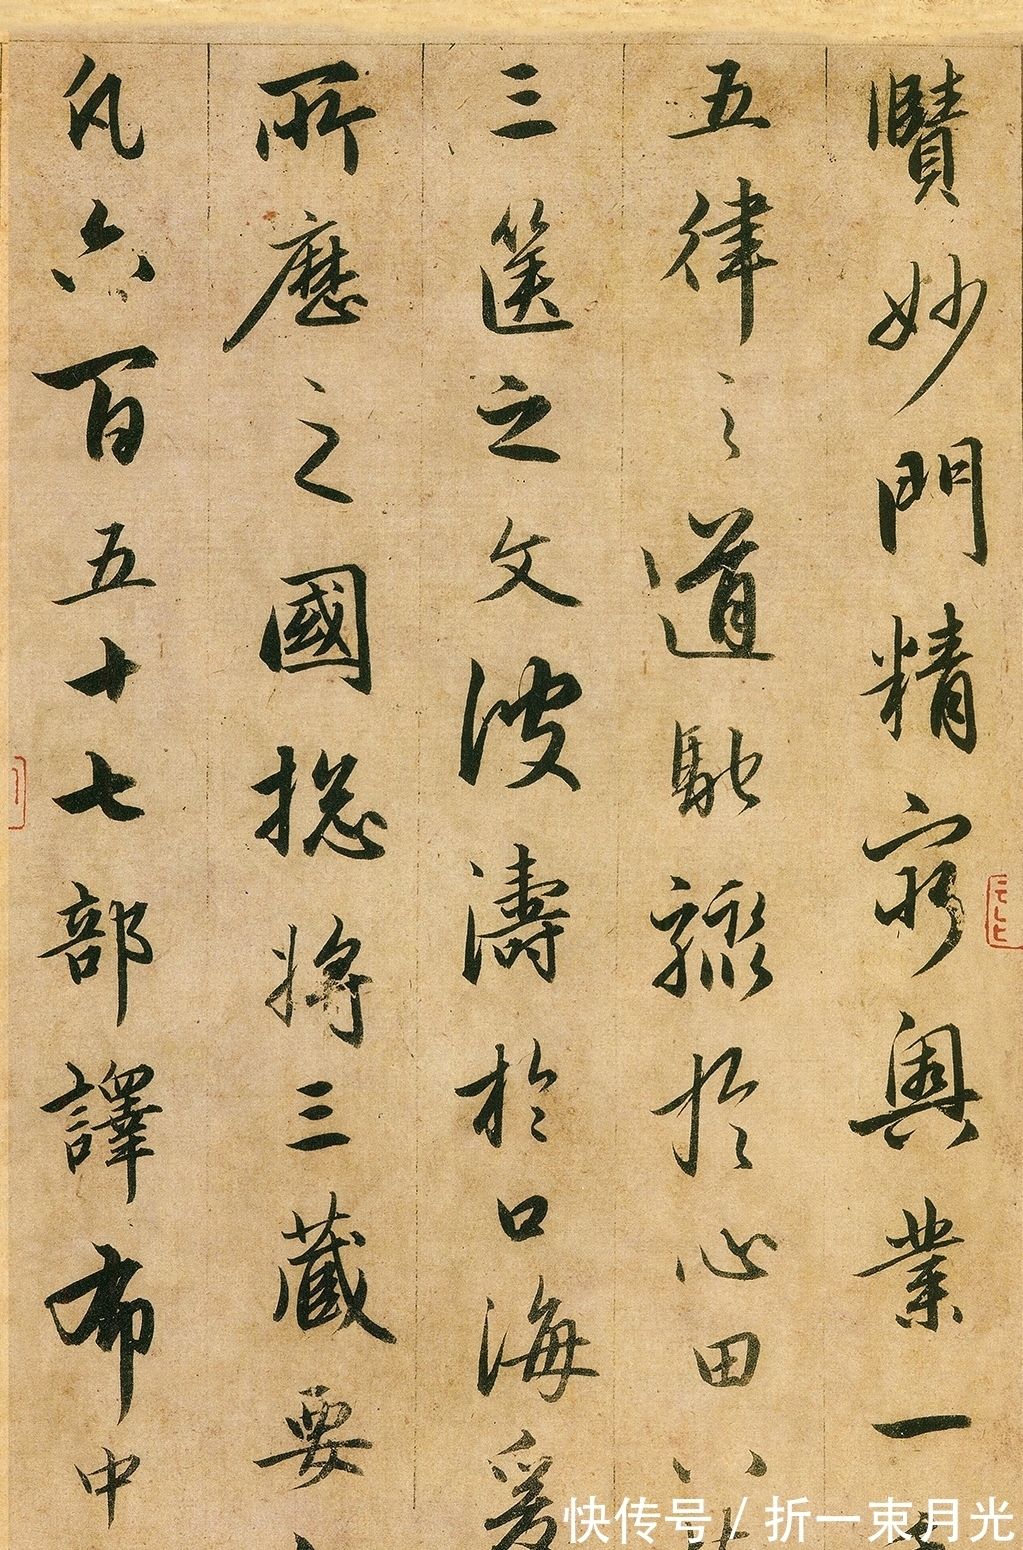 賾妙門精窮奧業一
五律之道馳驟於心田八
三篋之文波濤於口海爰
所歷之國揔將三藏要
凡六百五十七部譯布中
快传号/折一束月光